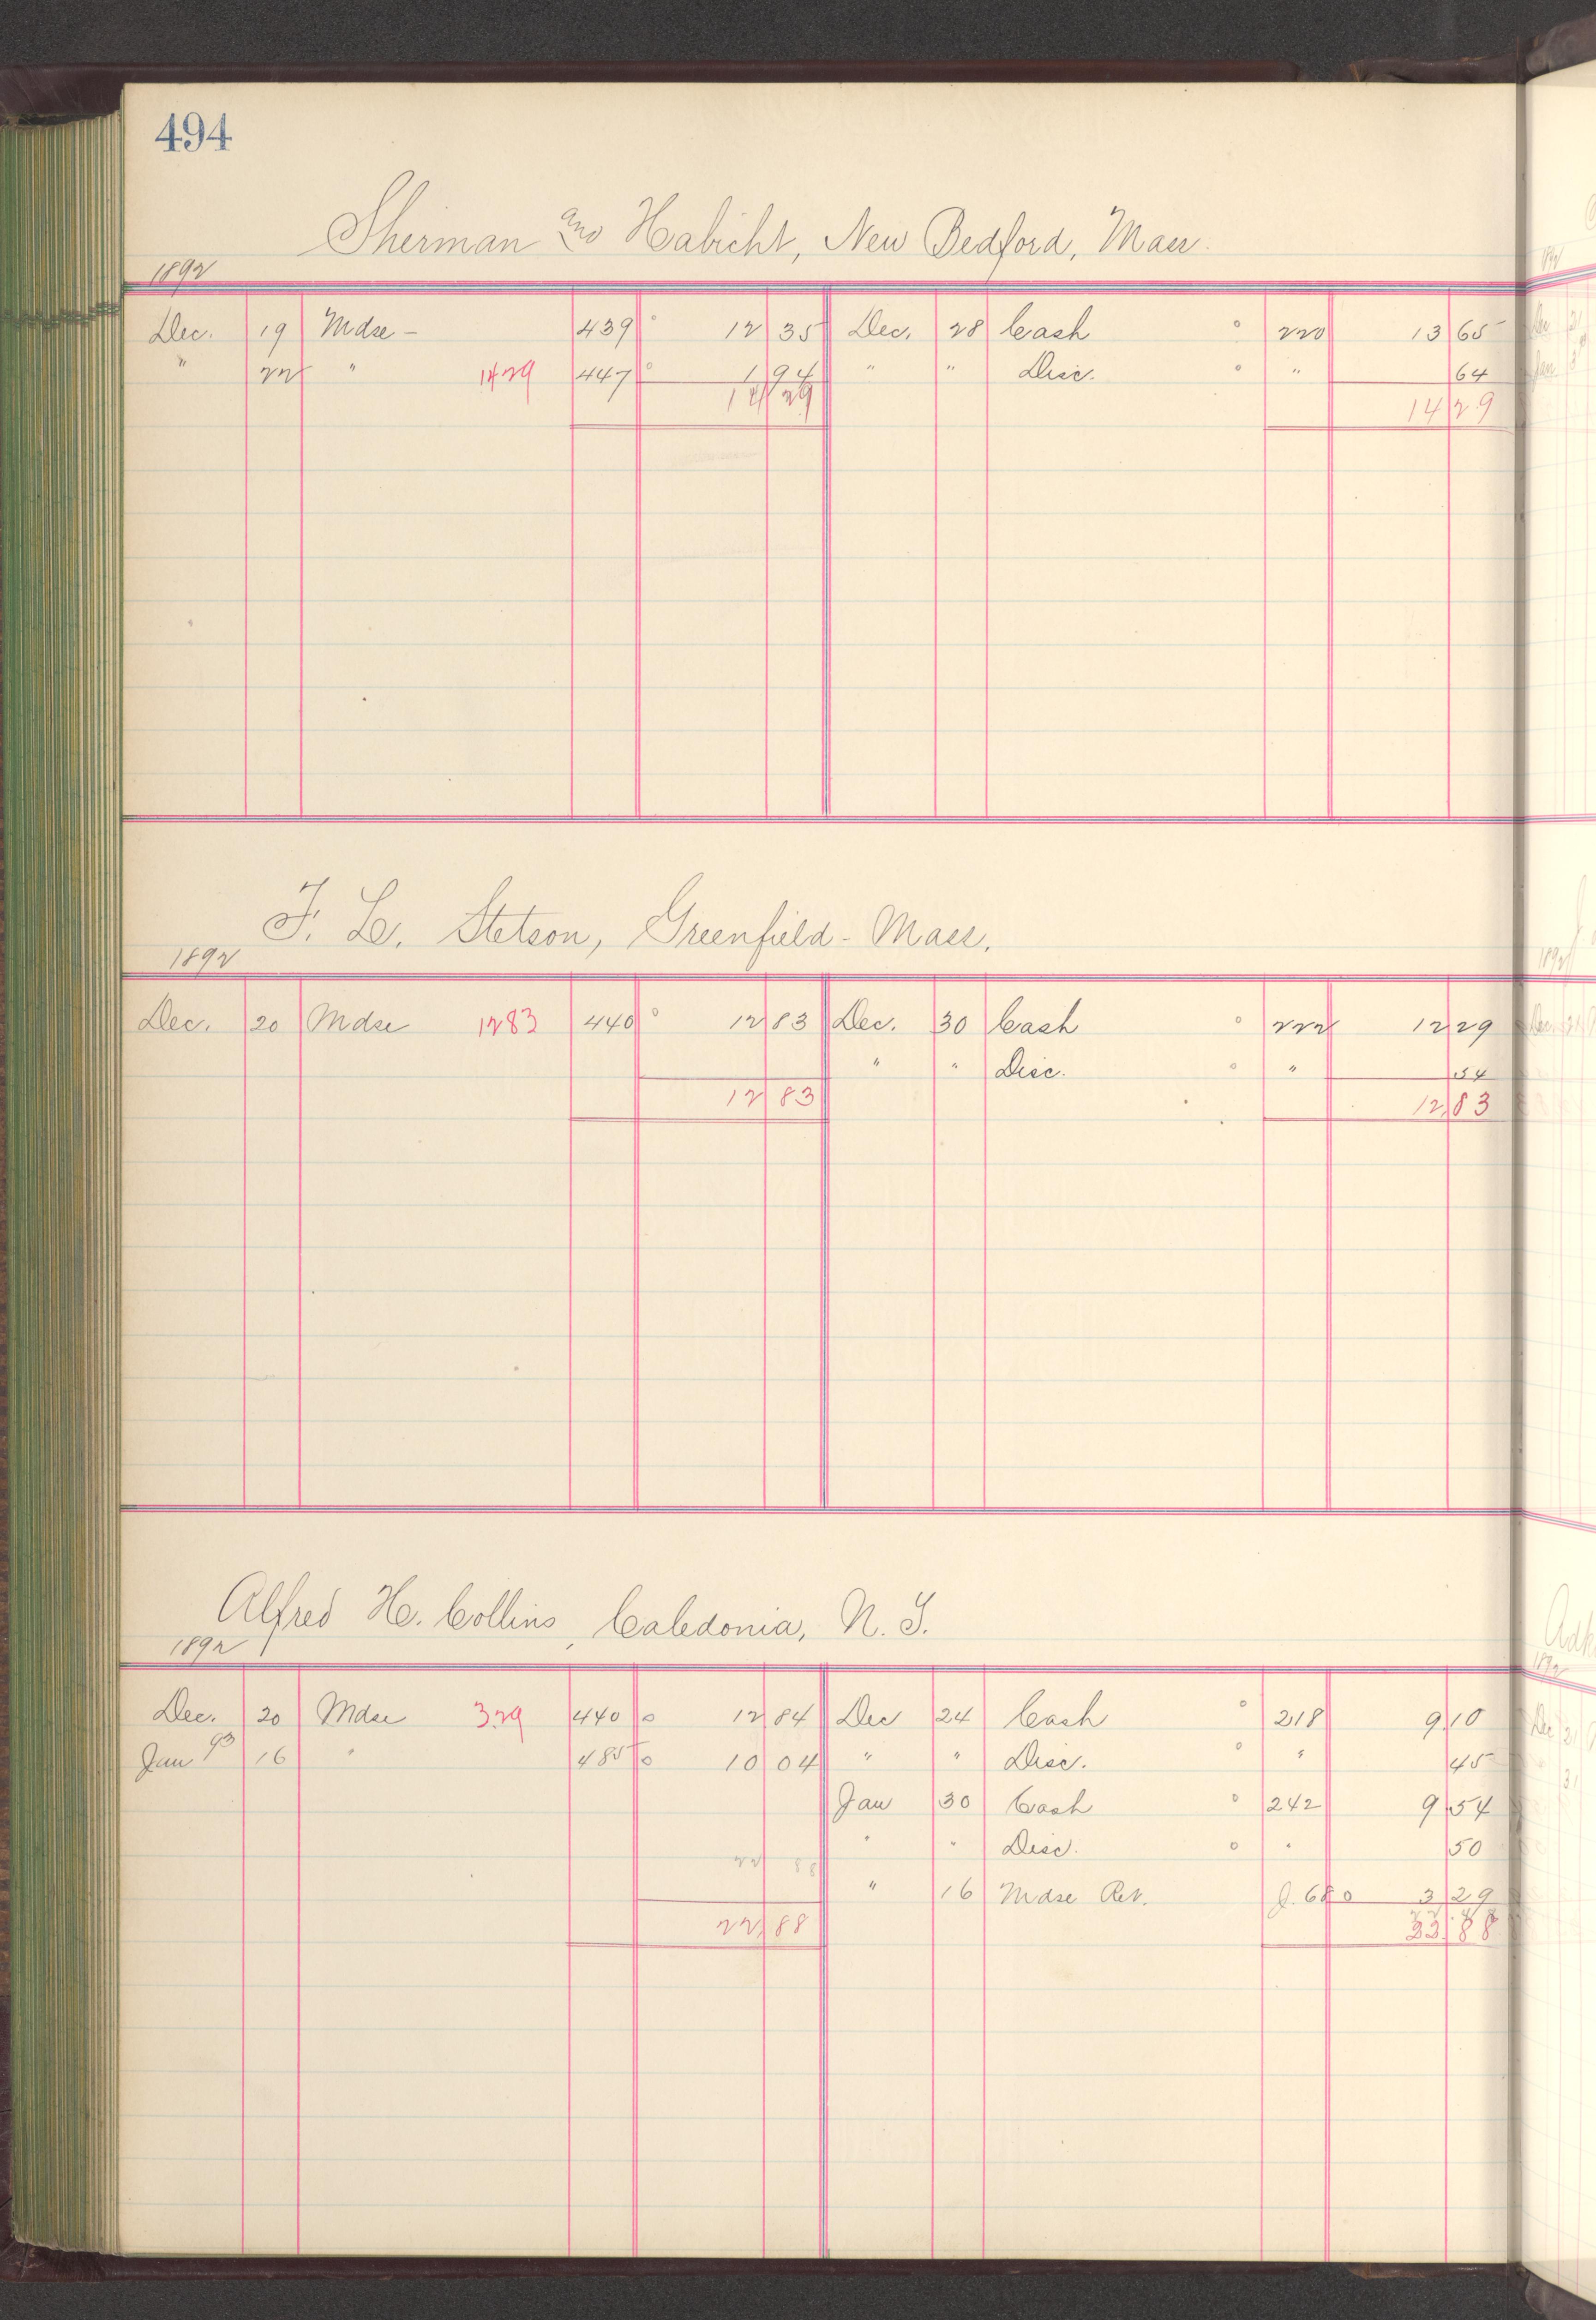 494
Sherman and Habicht, New Bedford, Mass.
1892
Dec. 19 Mdse - 439 12 35 Dec. 28 Cash 220 13 65
" 22 " 14 29 447 1 94 " " Disc. " 64
14 29 14 29
F. L. Stetson, Greenfield - Mass.
1892
Dec. 20 Mdse 12 83 440 12 83 Dec. 30 Cash 222 12 29
" " Disc. " 54
12 83 12 83
Alfred H. Collins, Caledonia, N. Y.
1892
Dec. 20 Mdse 3.29 440 12 84 Dec 24 Cash 218 9 10
Jan 93 16 " 485 10 04 " " Disc. " 45
Jan 30 Cash 242 9 54
" " Disc. " 50
22 88
" 16 Mdse Ret. J. 680 3 29
22 88 22 88